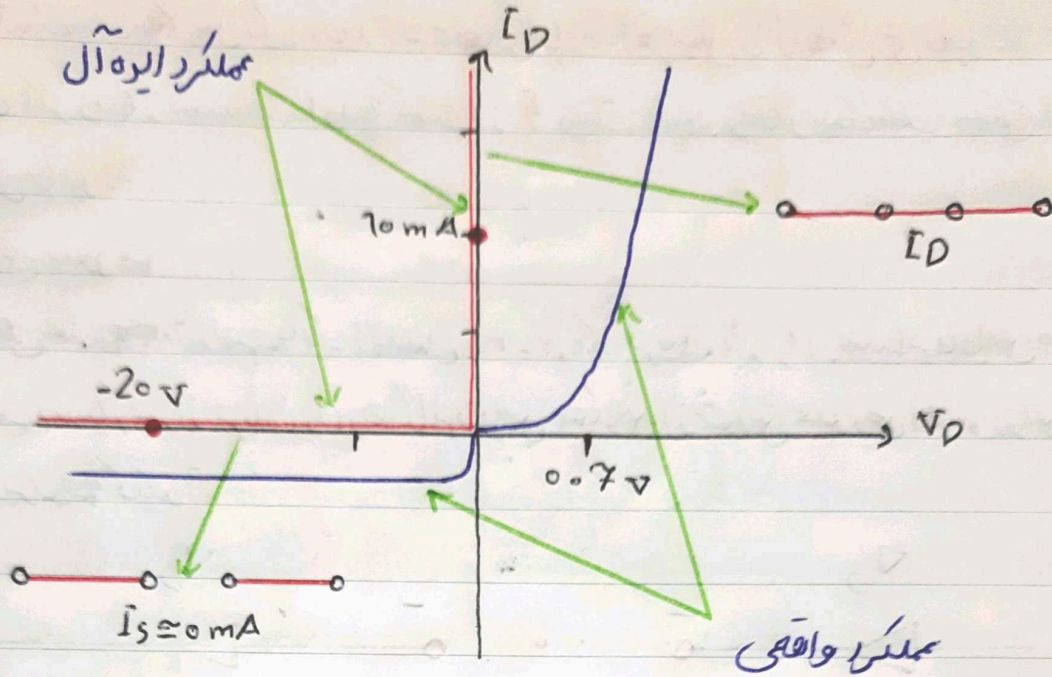 I_D
عملکرد ایده آل
10 mA
I_D
-20 V
V_D
0.7 V
I_S ≃ 0 mA
عملکرد واقعی